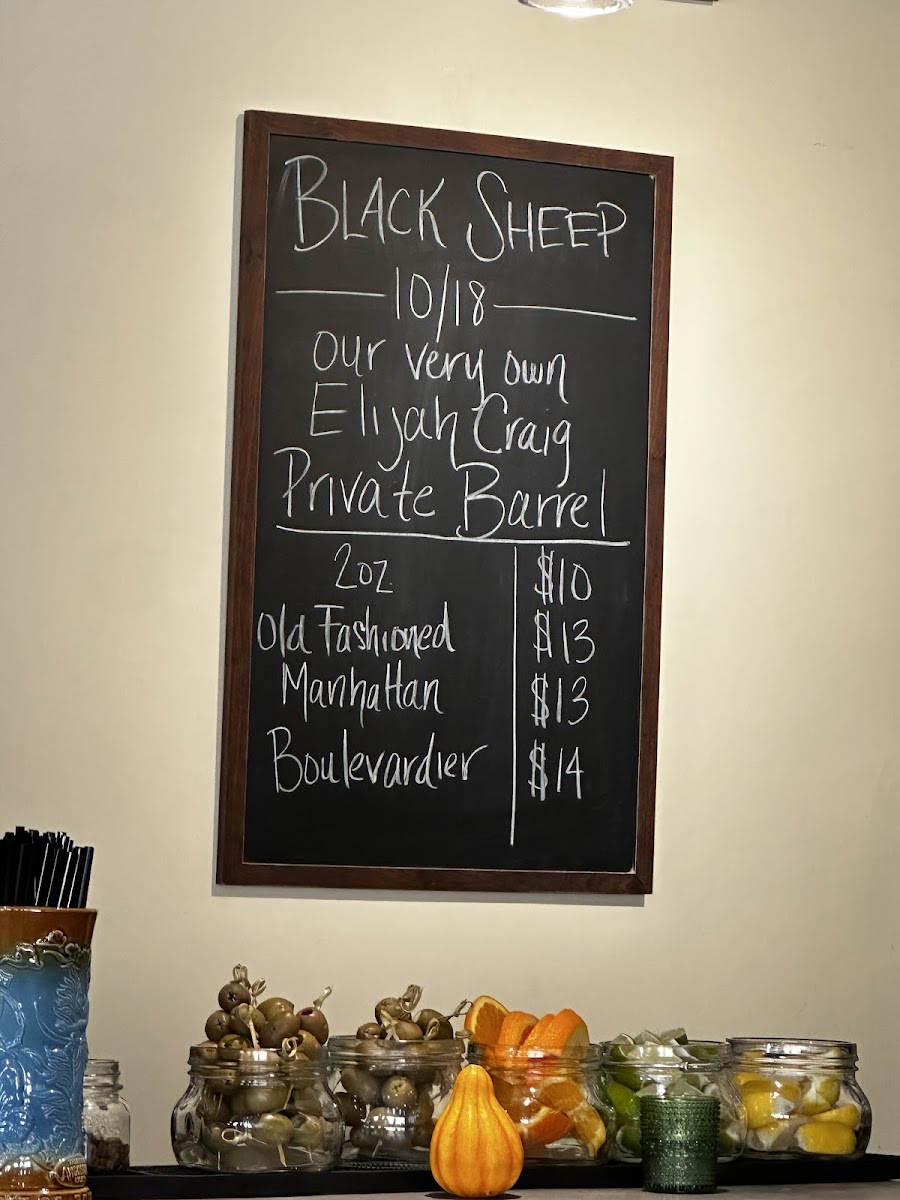 BLACK SHEEP
10/18
our very own
Elijah Craig
Private Barrel
2oz. $10
Old Fashioned $13
Manhattan $13
Boulevardier $14